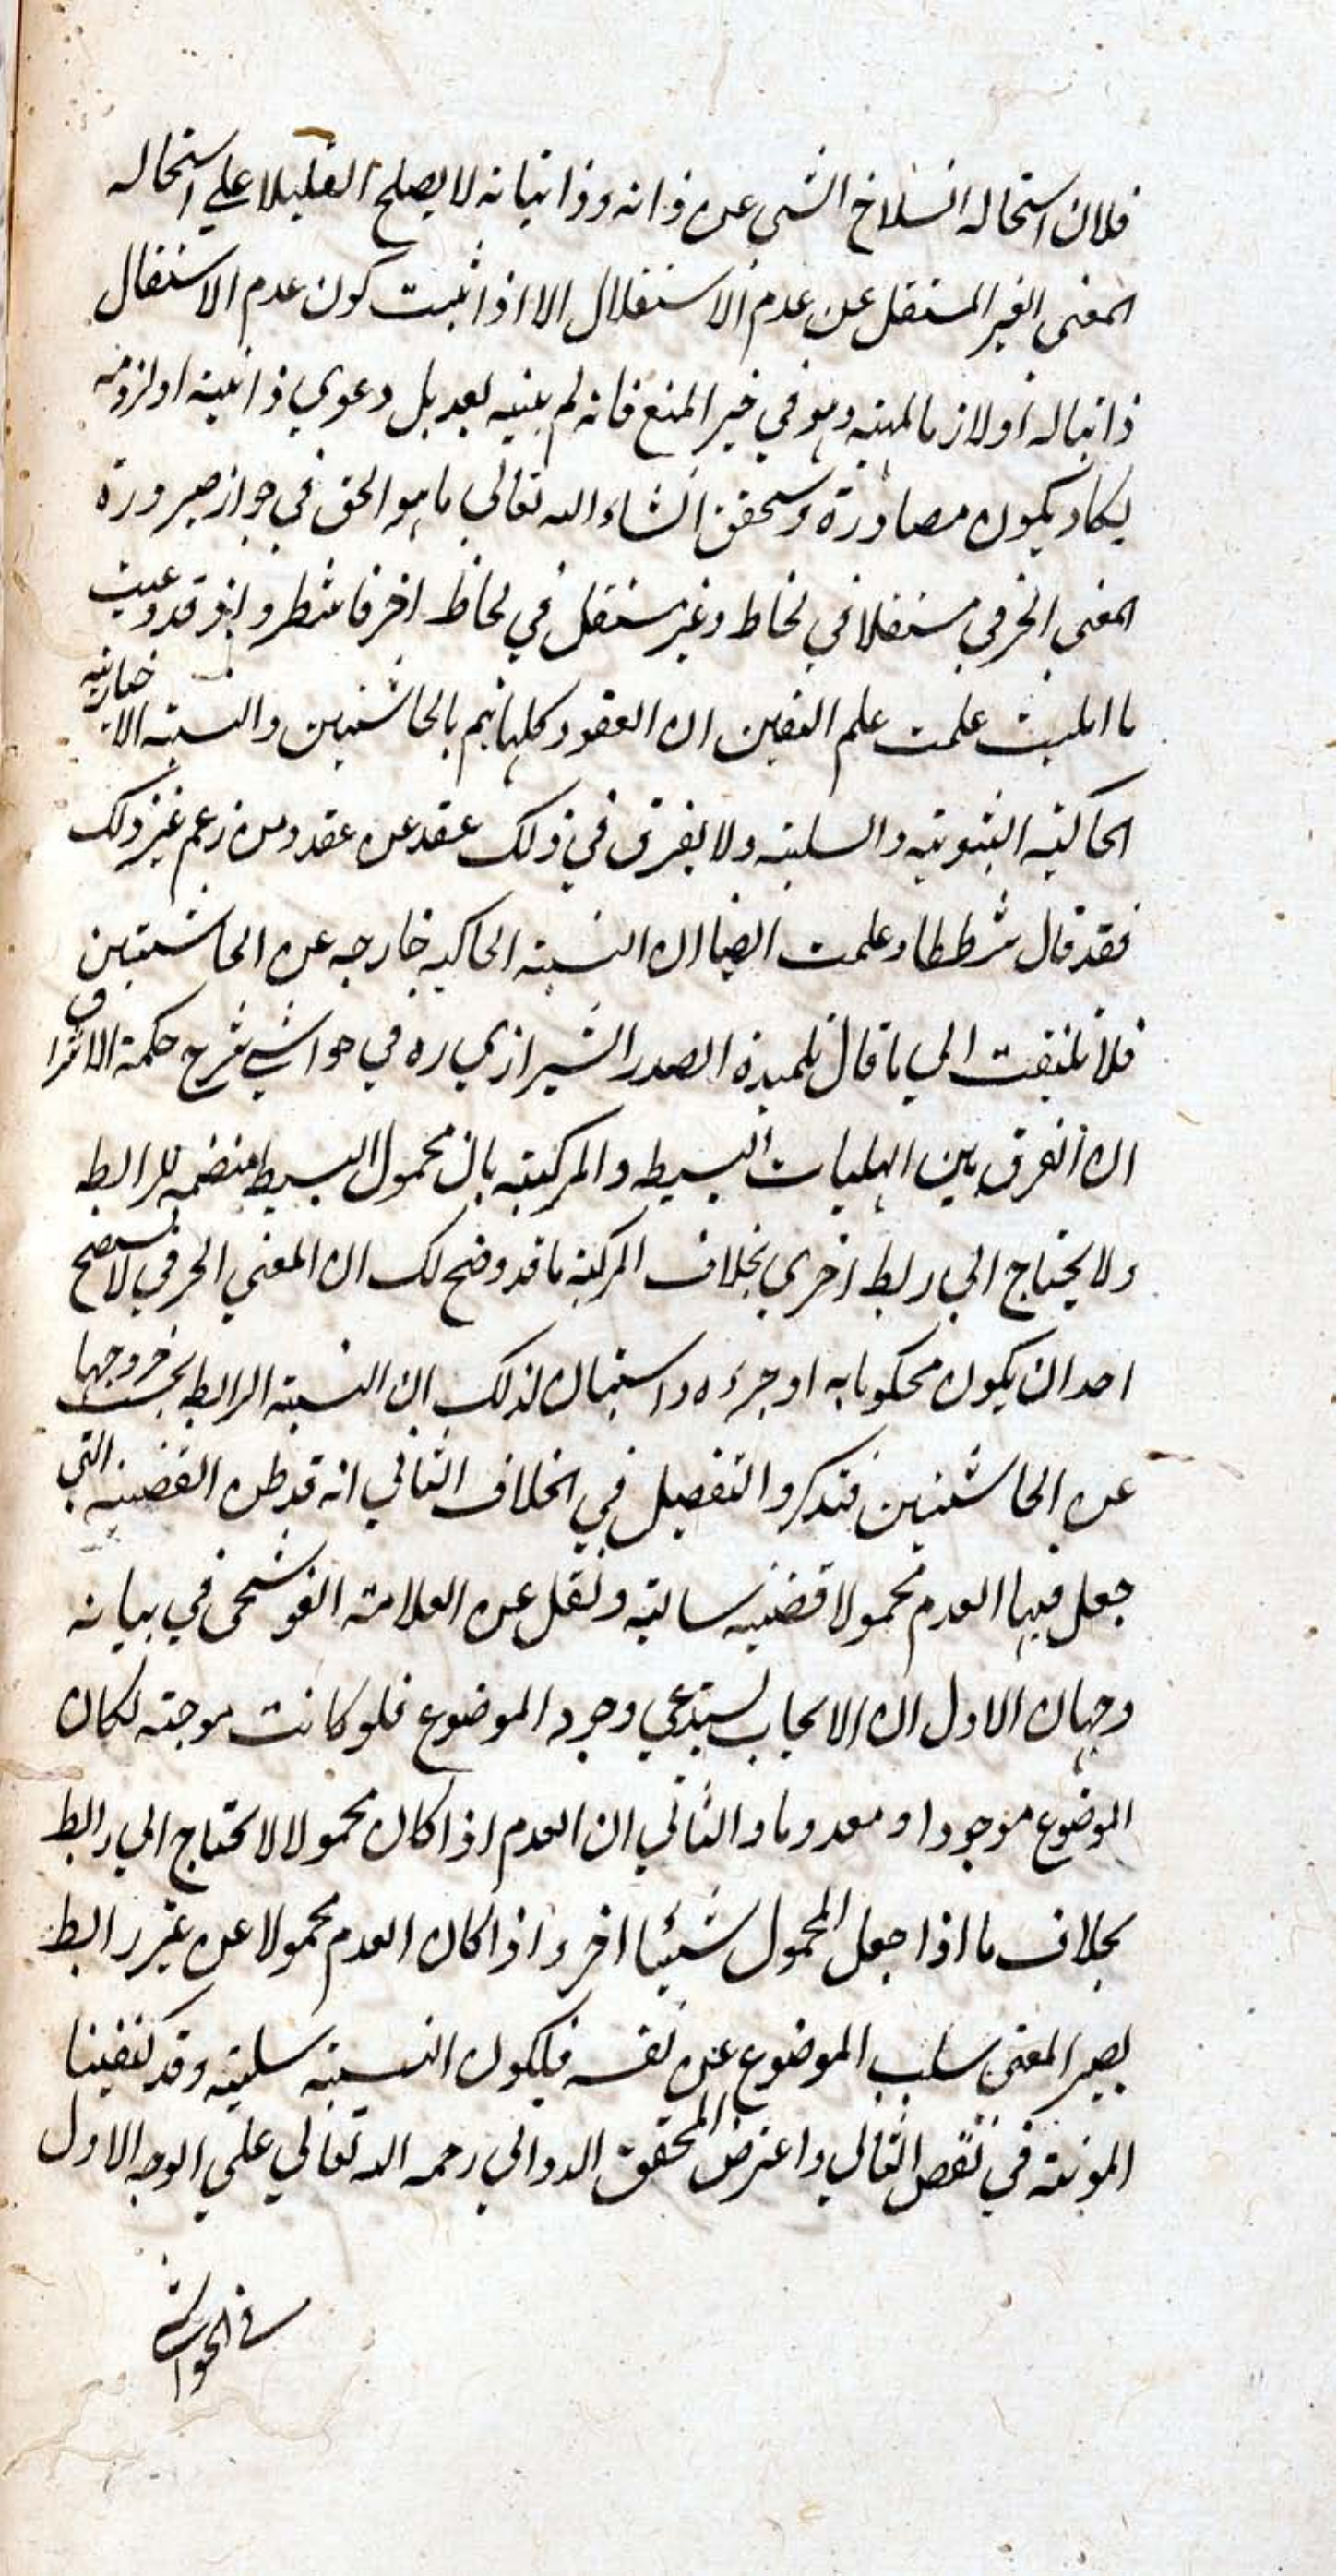 فلان استحاله انسلاخ الشي عن ذاته وذاتياته لا يصلح تعليلا علي استحاله
المعني الغير المستقل عن عدم الاستقلال الا اذا ثبت كون عدم الاستقلال
ذاتيا له او لازما لمهيته وهو في حيز المنع فانه لم يبينه بعد بل دعوي ذاتيته او لزومه
يكاد يكون مصادرة وسنحقق انشاء الله تعالي ما هو الحق في جواز صيرورة
المعني الحرفي مستقلا في لحاظ وغير مستقل في لحاظ اخر فانتظر واذ قد دعيت
ما امليت علمت علم اليقين ان العقود كلها يتم بالحاشيتين والنسبة الاخباريه
الحاكية الثبوتيه والسلبيه ولا يفرق في ذلك عقد عن عقد ومن زعم غير ذلك
فقد قال شططا وعلمت ايضا ان النسبة الحاكيه خارجه عن الحاشيتين
فلا تلتفت الي ما قال تلميذه الصدر الشيرازي ره في حواشي شرح حكمة الاشراق
ان الفرق بين الهليات البسيطه والمركبة بان محمول البسيط متضمنه للرابط
ولا يحتاج الي رابط اخري بخلاف المركبة ما قد وضح لك ان المعني الحرفي لا يصح
احد ان يكون محكوما به او جزءه واستبان لذلك ان النسبة الرابط يجب خروجها
عن الحاشيتين فتذكر والتفصيل في الخلاف الثاني انه قد ظن القضية التي
جعل فيها العدم محمولا قضيه سالبة ونقل عن العلامة القوشجي في بيانه
وجهان الاول ان الايجاب يستدعي وجود الموضوع فلو كانت موجبة لكان
الموضوع موجودا ومعدوما والثاني ان العدم اذا كان محمولا لا يحتاج الي رابط
بخلاف ما اذا جعل المحمول شيئا اخر واذا كان العدم محمولا عن غير رابط
يصير المعني سلب الموضوع عن نفسه فيكون النسبة سلبيه وقد كفينا
المونة في نقض الثاني واعترض المحقق الدواني رحمه الله تعالي علي الوجه الاول
في الحواشي